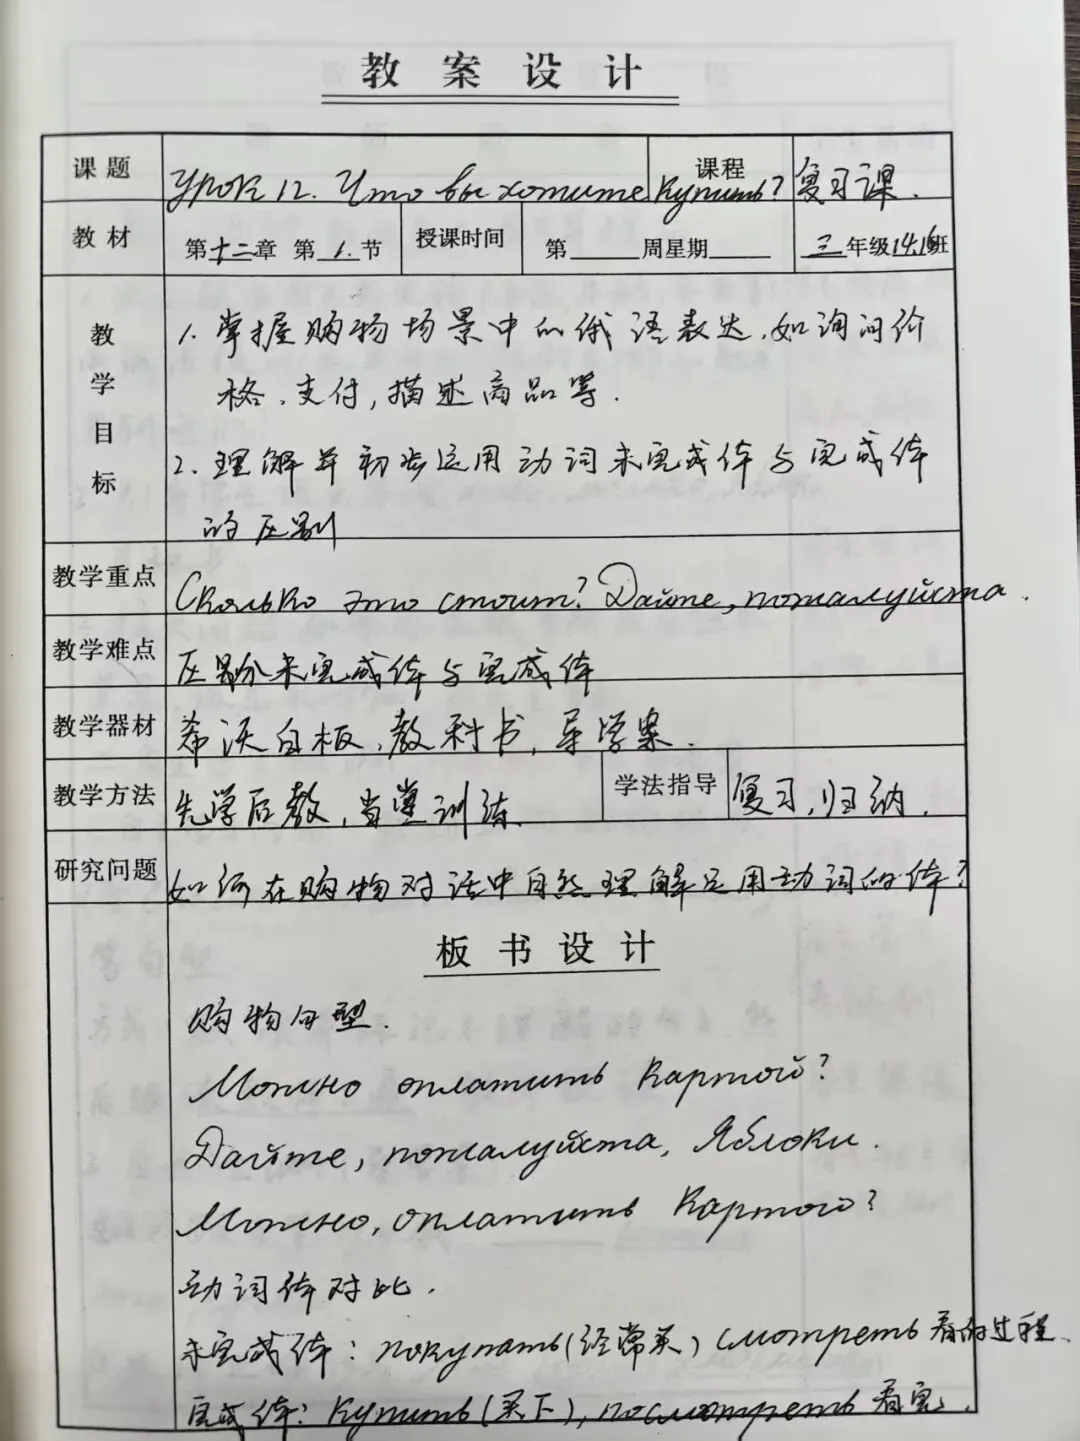 教案设计
课题 Урок 12. Что вы хотите купить? 课程 复习课.
教材 第十二章 第1.节 授课时间 第 周星期 三年级14.16班
教学目标
1. 掌握购物场景中的俄语表达,如询问价
格、支付,描述商品等.
2. 理解并初步运用动词未完成体与完成体
的区别
教学重点 Сколько это стоит? Дайте, пожалуйста.
教学难点 区别分未完成体与完成体
教学器材 希沃白板,教科书,导学案.
教学方法 先学后教,当堂训练. 学法指导 复习,归纳.
研究问题 如何在购物对话中自然理解运用动词的体?
板书设计
购物句型.
Можно оплатить картой?
Дайте, пожалуйста, Яблоки.
Можно, оплатить картой?
动词体对比.
未完成体: покупать(经常买) смотреть 看的过程.
完成体: Купить(买下), посмотреть 看完.